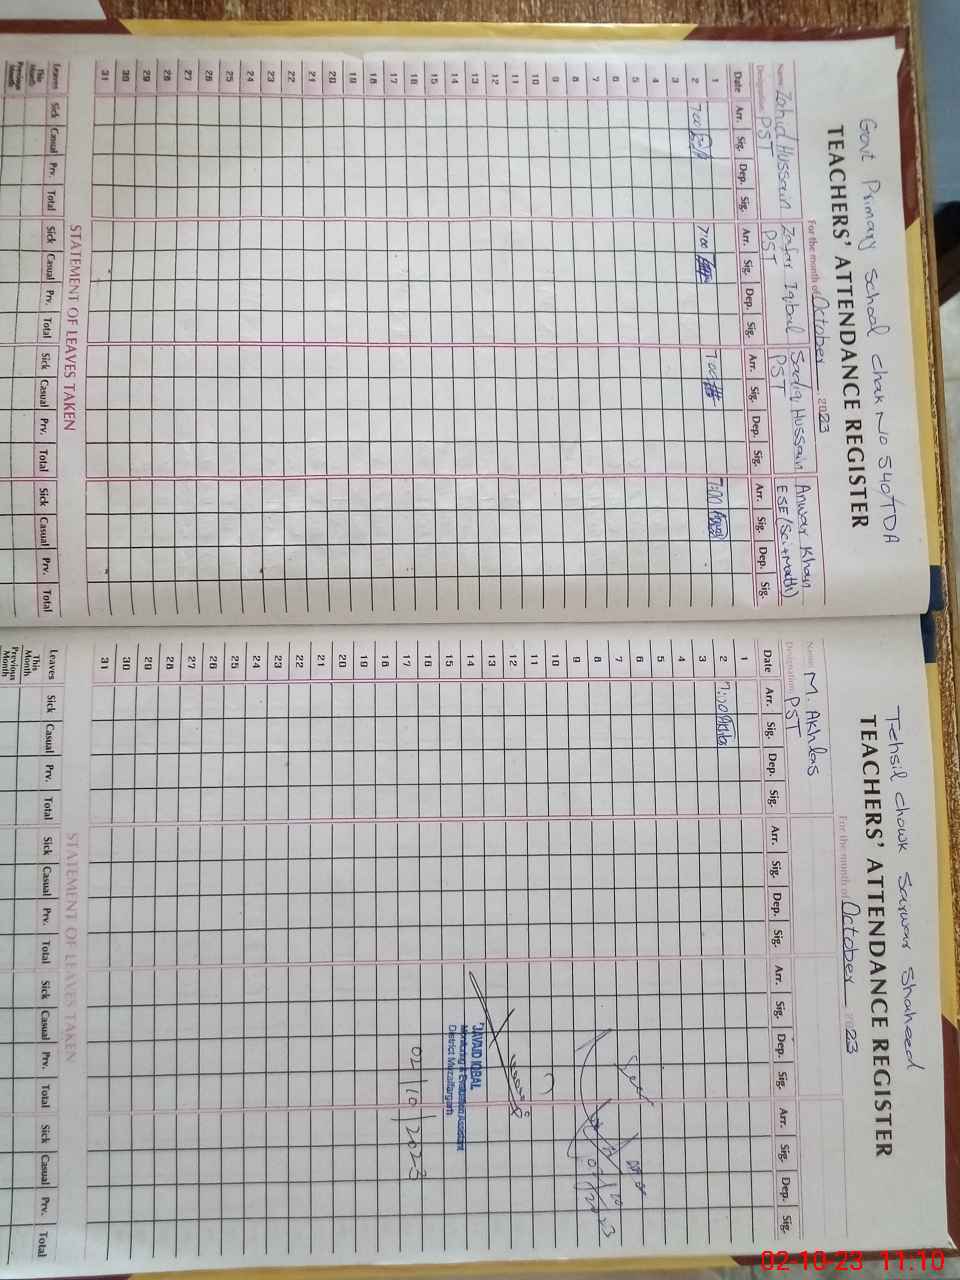 Govt Primary School Chak No 540/TDA
TEACHERS' ATTENDANCE REGISTER
For the month of October 2023
Name Zahid Hussain Zafar Iqbal Sadiq Hussain Anwar Khan
Designation PST PST PST ESE (Sci+Math)
Date Arr. Sig. Dep. Sig. Arr. Sig. Dep. Sig. Arr. Sig. Dep. Sig. Arr. Sig. Dep. Sig.
1
2 7:00 7:00 7:00 7:00
3
4
5
6
7
8
9
10
11
12
13
14
15
16
17
18
19
20
21
22
23
24
25
26
27
28
29
30
31
STATEMENT OF LEAVES TAKEN
Leaves Sick Casual Prv. Total Sick Casual Prv. Total Sick Casual Prv. Total Sick Casual Prv. Total
This Month
Previous Month
Tehsil Chowk Sarwar Shaheed
TEACHERS' ATTENDANCE REGISTER
For the month of October 2023
Name M. Akhlas
Designation PST
Date Arr. Sig. Dep. Sig. Arr. Sig. Dep. Sig. Arr. Sig. Dep. Sig. Arr. Sig. Dep. Sig.
1
2 7:00
3
4
5
6
7
8
9
10
11
12
13
14
15
16
17
18
19
20
21
22
23
24
25
26
27
28
29
30
31
JAVAID IQBAL
Monitoring & Evaluation Assistant
District Muzaffargarh
02/10/2023
STATEMENT OF LEAVES TAKEN
Leaves Sick Casual Prv. Total Sick Casual Prv. Total Sick Casual Prv. Total Sick Casual Prv. Total
This Month
Previous Month
02-10-23 11:10